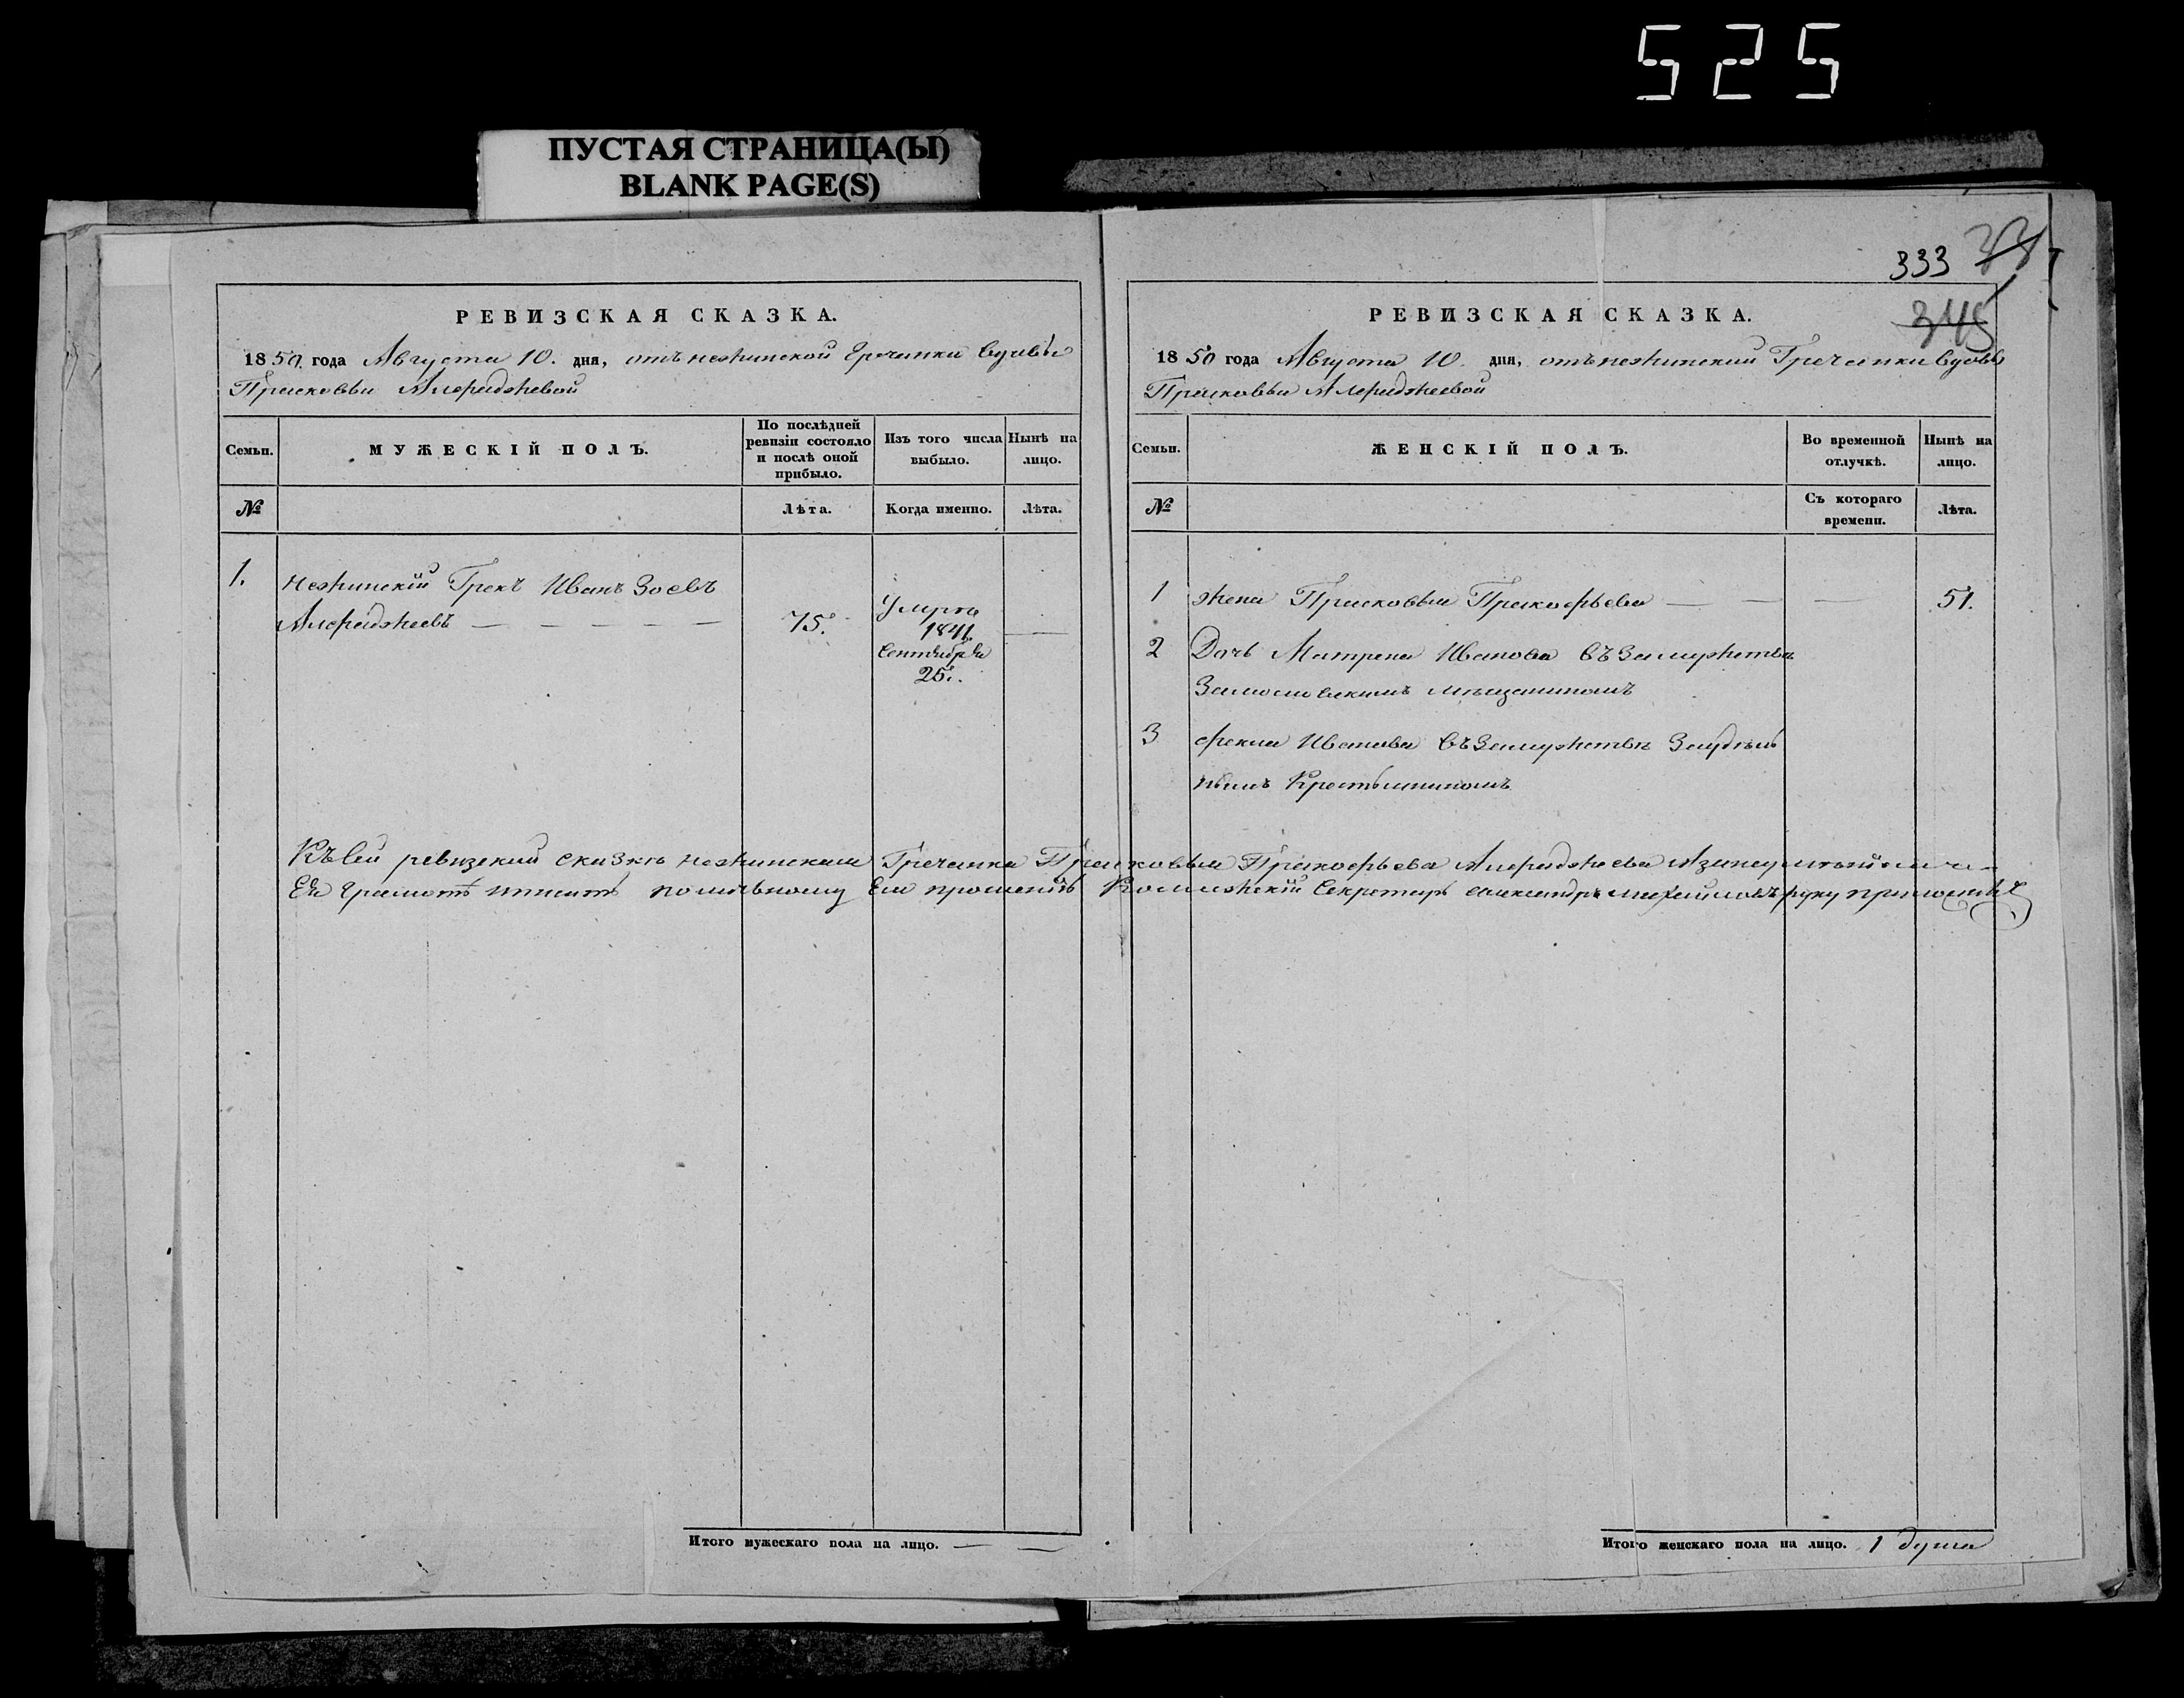 525
ПУСТАЯ СТРАНИЦА(Ы)
BLANK PAGE(S)
РЕВИЗСКАЯ СКАЗКА.
1850. года Августа 10. дня, отъ нежинской Гречанки вдовы
Присковьи Алфиджевой
Семьи.
МУЖЕСКІЙ ПОЛЪ.
По послѣдней ревизіи состояло и послѣ оной прибыло.
Изъ того числа выбыло.
Нынѣ на лицо.
№
Лѣта.
Когда именно.
Лѣта.
1.
Нежинскій Грекъ Иванъ Зоевъ
75.
Умре
1841.
Сентября
25.
Итого мужескаго пола на лицо. — —
333
345
РЕВИЗСКАЯ СКАЗКА.
1850 года Августа 10. дня, отъ нежинский Гречанки вдовы
Семьи.
ЖЕНСКІЙ ПОЛЪ.
Во временной отлучкѣ.
Нынѣ на лицо.
№
Съ котораго времени.
Лѣта.
1 жена Присковья Прокофьева — — — 51.
2 Дочь Матрена Иванова въ замужствѣ
мѣщаниномъ
3 Иванова въ замужствѣ
Крестьяниномъ
Къ сей ревизской сказкѣ нежинская Гречанка Присковья Прокофьева
Ея Грамотѣ писать Ея прошенію Секретарь Александръ руку приложилъ
Итого женскаго пола на лицо. 1 душа